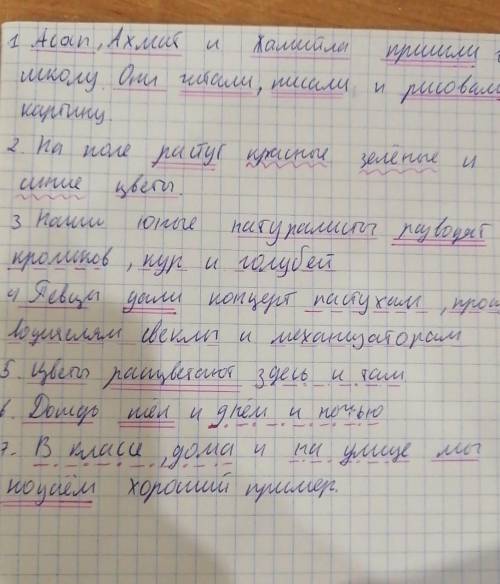 1 Асан, Ахмат и Хамитла пришли в
школу. Они читали, писали и рисовали
картину.
2. На поле растут красные зелёные и
синие цветы.
3 Наши юные натуралисты разводят
кроликов, кур и голубей
4 Певцы дали концерт пастухам, прои
водителям свеклы и механизаторам
5. Цветы расцветают здесь и там
6. Дождь шёл и днём и ночью
7. В классе, дома и на улице мы
подаём хороший пример.